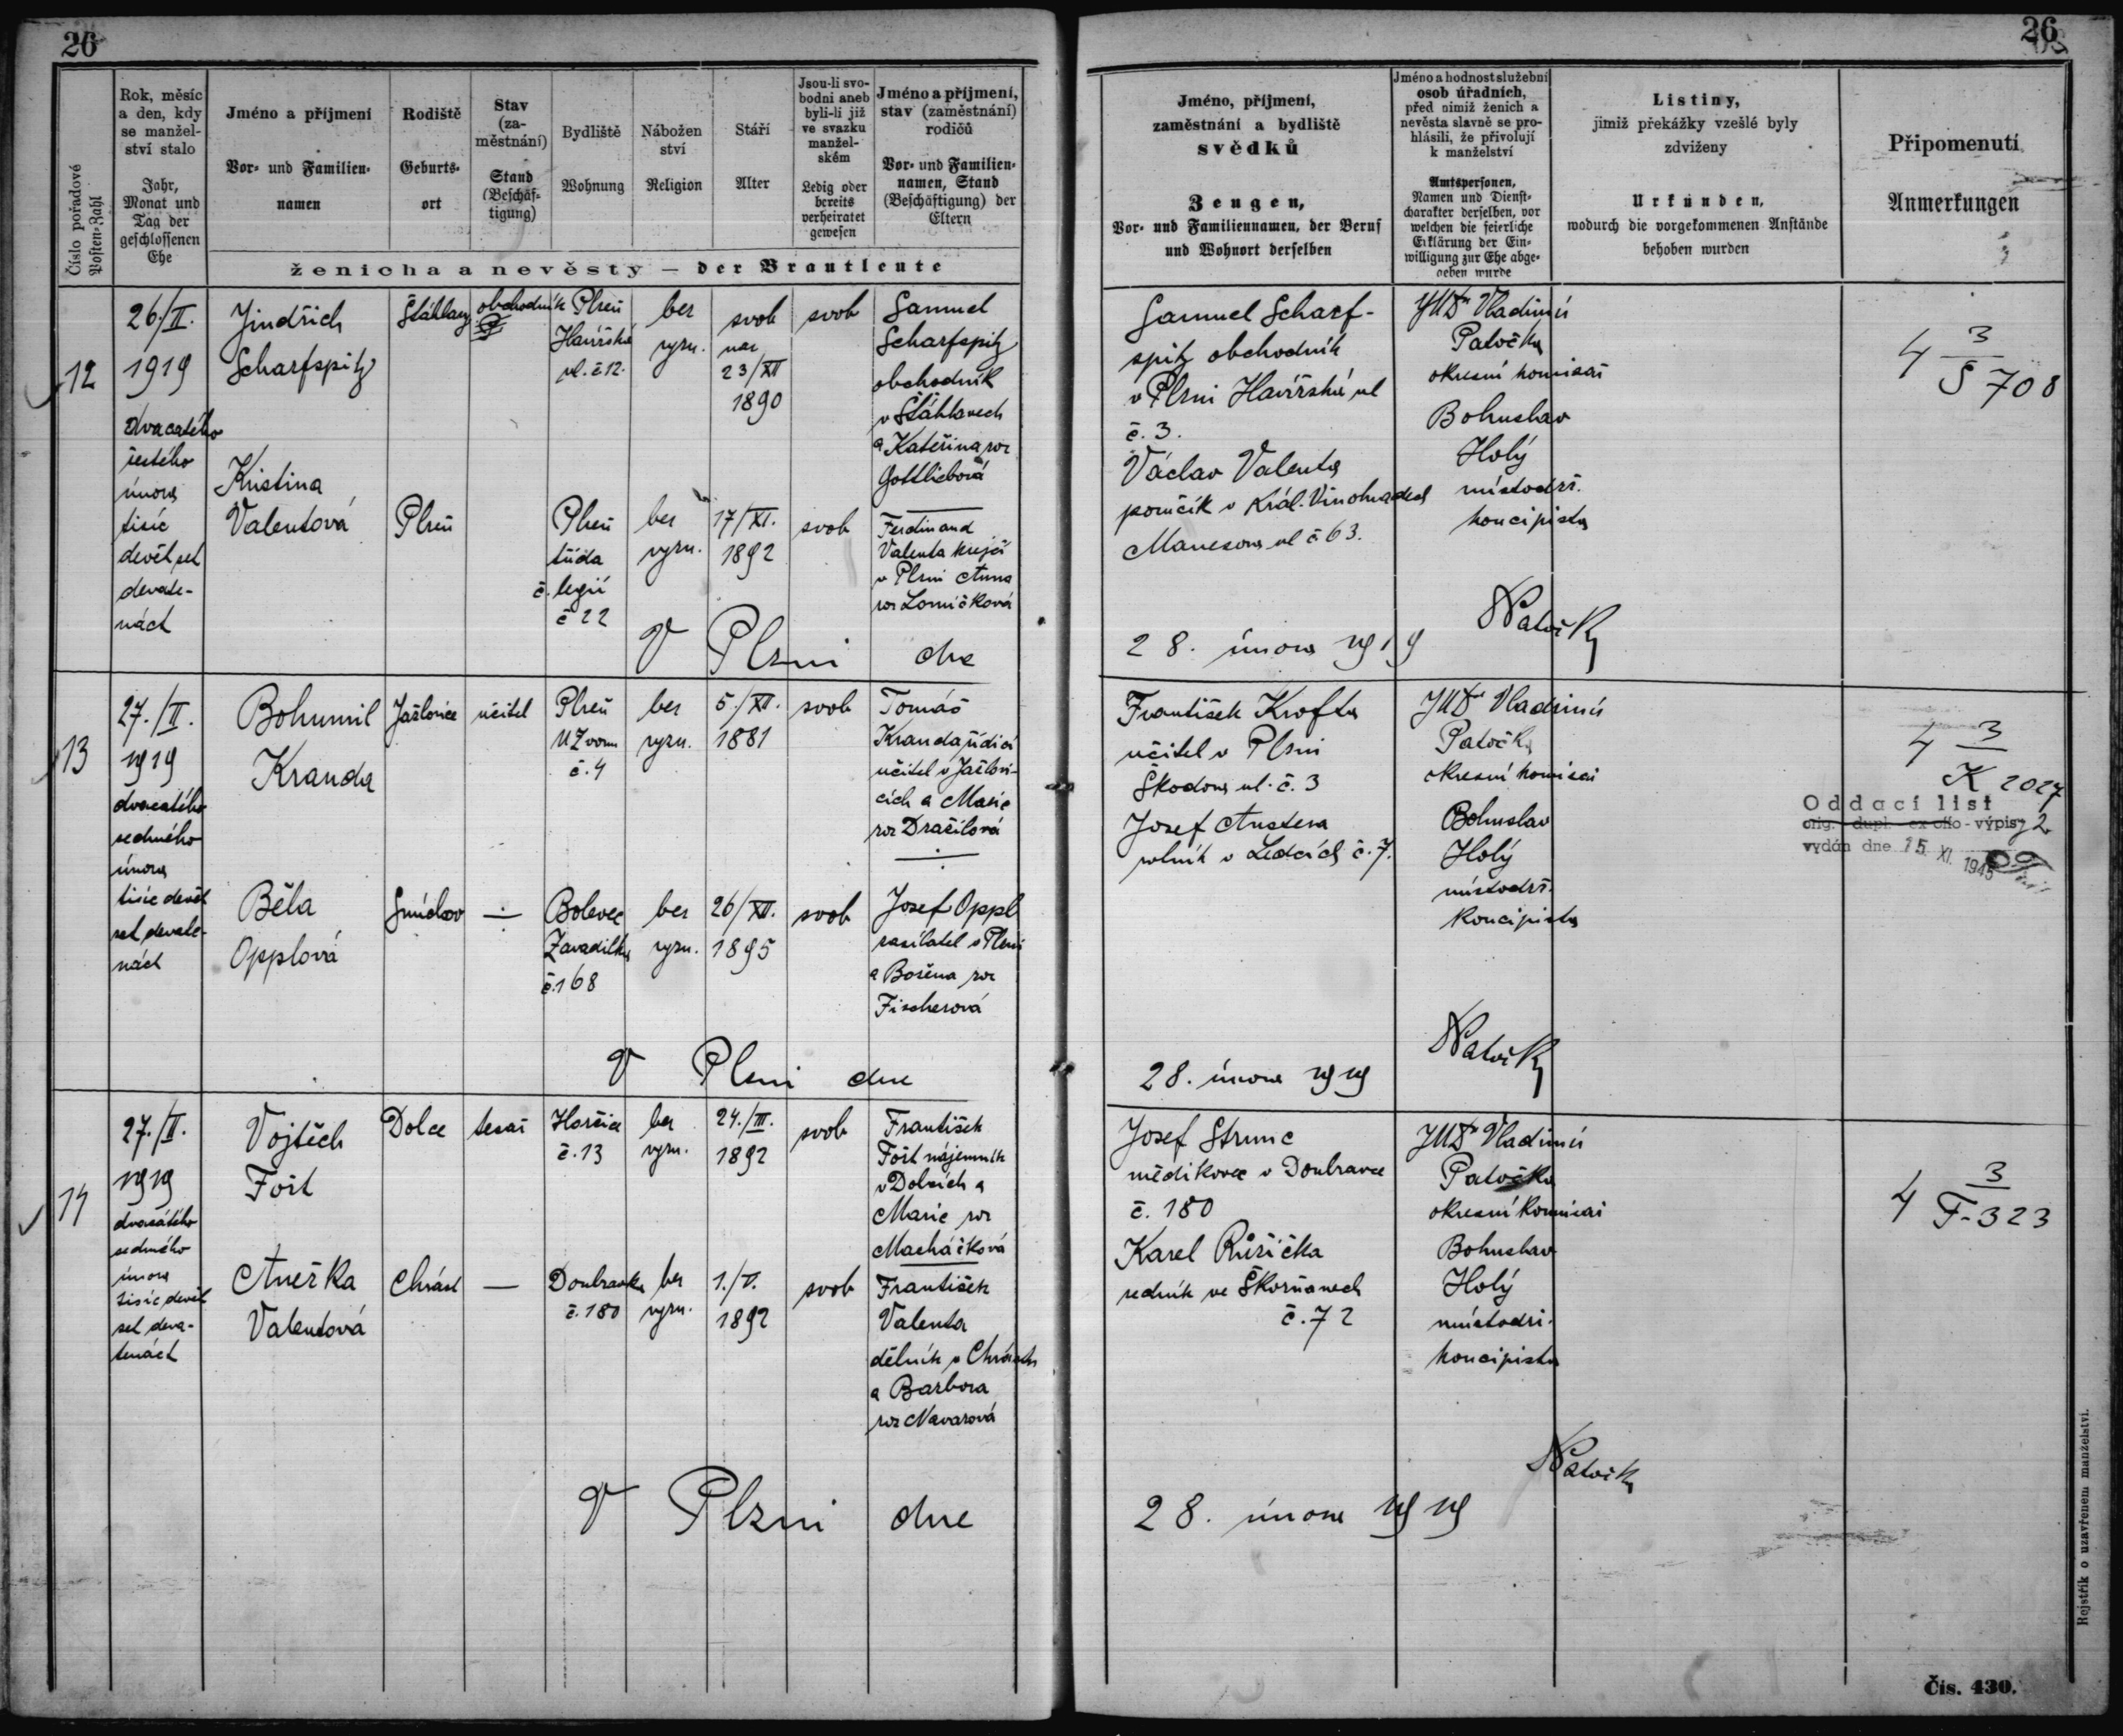 26
Číslo pořadové
Posten-Zahl
Rok, měsíc
a den, kdy
se manžel-
ství stalo
Jahr,
Monat und
Tag der
geschlossenen
Ehe
Jméno a příjmení
Vor- und Familien-
namen
Rodiště
Geburts-
ort
Stav
(za-
městnání)
Stand
(Beschäf-
tigung)
Bydliště
Wohnung
Nábožen
ství
Religion
Stáří
Alter
Jsou-li svo-
bodni aneb
byli-li již
ve svazku
manžel-
ském
Ledig oder
bereits
verheiratet
gewesen
Jméno a příjmení,
stav (zaměstnání)
rodičů
Vor- und Familien-
namen, Stand
(Beschäftigung) der
Eltern
ženicha a nevěsty – der Brautleute
12
26./II.
1919
dvacatého
šestého
února
tisíc
devět set
devate-
náct
Jindřich
Scharfspitz
Štáhlavy
obchodník
Plzeň
Havířská
ul. č 12.
bez
vyzn.
svob
nar
23/XII
1890
svob
Samuel
Scharfspitz
obchodník
v Štáhlavech
a Kateřina roz
Gottliebová
Kristina
Valentová
Plzeň
Plzeň
třída
č. legií
č 22
bez
vyzn.
17/XI.
1892
svob
Ferdinand
Valenta krejčí
v Plzni Anna
roz Lomičková
V Plzni dne
13
27./II.
1919
dvacatého
sedmého
února
tisíc devět
set devate-
náct
Bohumil
Kranda
Jažlovice
učitel
Plzeň
U Zvonu
č. 4
bez
vyzn.
5./XII.
1881
svob
Tomáš
Kranda řídící
učitel v Jažlovi-
cích a Marie
roz Dražilová
Běla
Opplová
Smíchov
Bolevec
Zavadilka
č. 168
bez
vyzn.
26/XII.
1895
svob
Josef Oppl
zasílatel v Plzni
a Božena roz
Fischerová
V Plzni dne
14
27./II.
1919
dvacátého
sedmého
února
tisíc devět
set deva-
tenáct
Vojtěch
Fošt
Dolce
tesař
Horšice
č. 13
bez
vyzn.
24./III.
1892
svob
František
Fošt nájemník
v Dolcích a
Marie roz
Macháčková
Anežka
Valentová
Chrást
—
Doubravka
č. 180
bez
vyzn.
1./V.
1892
svob
František
Valenta
dělník v Chrástu
a Barbora
roz Navarová
V Plzni dne
26
Jméno, příjmení,
zaměstnání a bydliště
svědků
Zeugen,
Vor- und Familiennamen, der Beruf
und Wohnort derselben
Jméno a hodnost služební
osob úřadních,
před nimiž ženich a
nevěsta slavně se pro-
hlásili, že přivolují
k manželství
Amtspersonen,
Namen und Dienst-
charakter derselben, vor
welchen die feierliche
Erklärung der Ein-
willigung zur Ehe abge-
geben wurde
Listiny,
jimiž překážky vzešlé byly
zdviženy
Urkunden,
wodurch die vorgekommenen Anstände
behoben wurden
Připomenutí
Anmerkungen
Samuel Scharf-
spitz obchodník
v Plzni Havířská ul
č. 3.
Václav Valenta
poručík v Král. Vinohradech
Manesova ul č 63.
28. února 1919
JUDr Vladimír
Patočka
okresní komisař
Bohuslav
Holý
místodrž.
koncipista
Patočka
4 3
S 708
František Krofta
učitel v Plzni
Škodova ul. č. 3
Josef Austera
rolník v Ledcích č. 7.
28. února 1919
JUDr Vladimír
Patočka
okresní komisař
Bohuslav
Holý
místodrž.
koncipista
Patočka
4 3
K 2027
Oddací list
orig. - dupl. - ex offo - výpis
vydán dne 15. XI. 1945
Josef Strunc
mědikovec v Doubravce
č. 180
Karel Růžička
sedník ve Škorňanech
č. 72
28. února 1919
JUDr Vladimír
Patočka
okresní komisař
Bohuslav
Holý
místodrž.
koncipista
Patočka
4 3
F-323
Rejstřík o uzavřenem manželství.
Čís. 430.